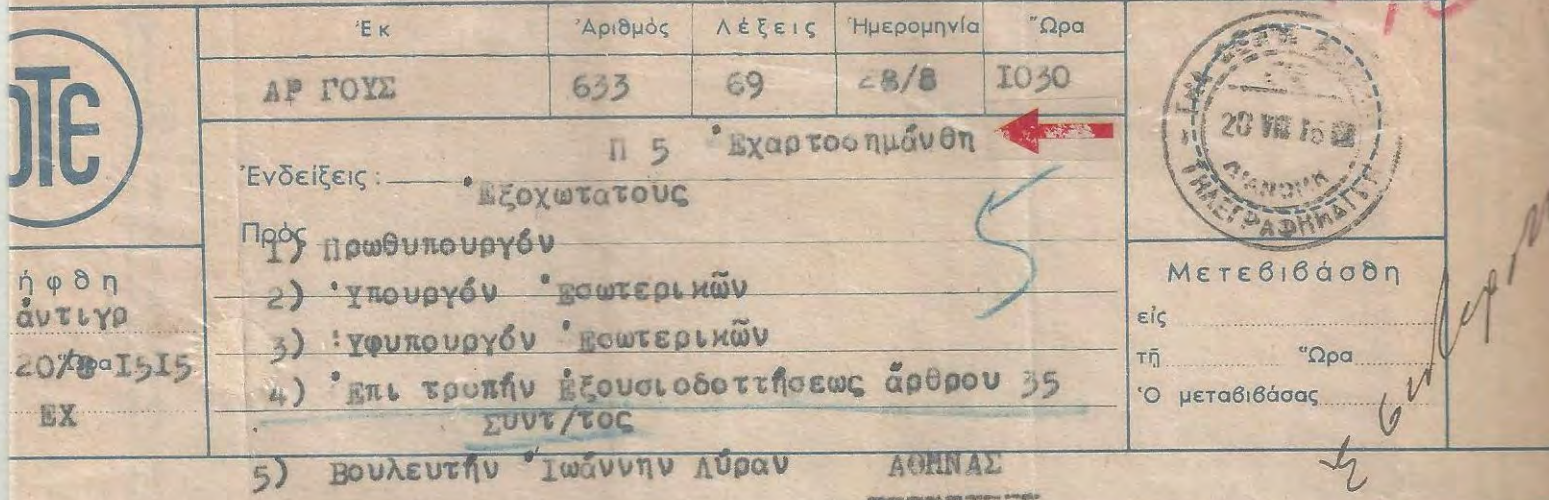 Ἐκ Ἀριθμὸς Λέξεις Ἡμερομηνία Ὥρα
ΑΡ ΓΟΥΣ 633 69 28/8 Ι030
ΟΤΕ
Π 5 Ἐχαρτοσημάνθη
Ἐνδείξεις :
Ἐξοχωτατους
Πρὸς
1) Πρωθυπουργόν
2) Ὑπουργόν Ἐσωτερικῶν
3) Ὑφυπουργόν Ἐσωτερικῶν
4) Ἐπι τροπήν Ἐξουσιοδοττήσεως ἄρθρου 35
Συντ/τος
5) Βουλευτήν Ἰωάννην Λύραν ΑΘΗΝΑΣ
ήφθη
ἀντιγρ
20/8 Ὥρα Ι5Ι5
ΕΧ
ΔΙΑΝΟΜΗ
Μετεβιβάσθη
εἰς
τῇ Ὥρα
Ὁ μεταβιβάσας